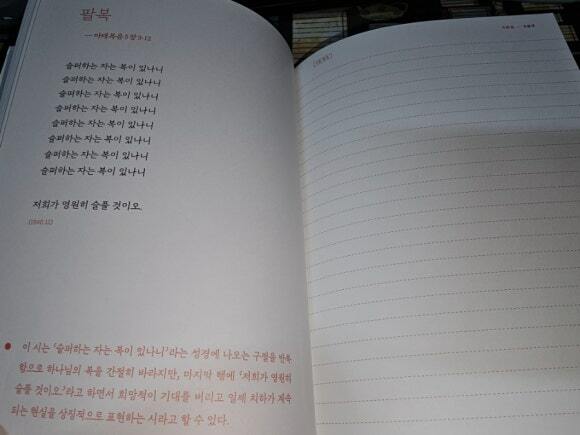 팔복
—마태복음 5장 3-12
슬퍼하는 자는 복이 있나니
슬퍼하는 자는 복이 있나니
슬퍼하는 자는 복이 있나니
슬퍼하는 자는 복이 있나니
슬퍼하는 자는 복이 있나니
슬퍼하는 자는 복이 있나니
슬퍼하는 자는 복이 있나니
슬퍼하는 자는 복이 있나니
저희가 영원히 슬플 것이오.
이 시는 ‘슬퍼하는 자는 복이 있나니’라는 성경에 나오는 구절을 반복
함으로 하나님의 복을 간절히 바라지만, 마지막 행에 ‘저희가 영원히
슬플 것이오.’라고 하면서 희망적이 기대를 버리고 일제 치하가 계속
되는 현실을 상징적으로 표현하는 시라고 할 수 있다.